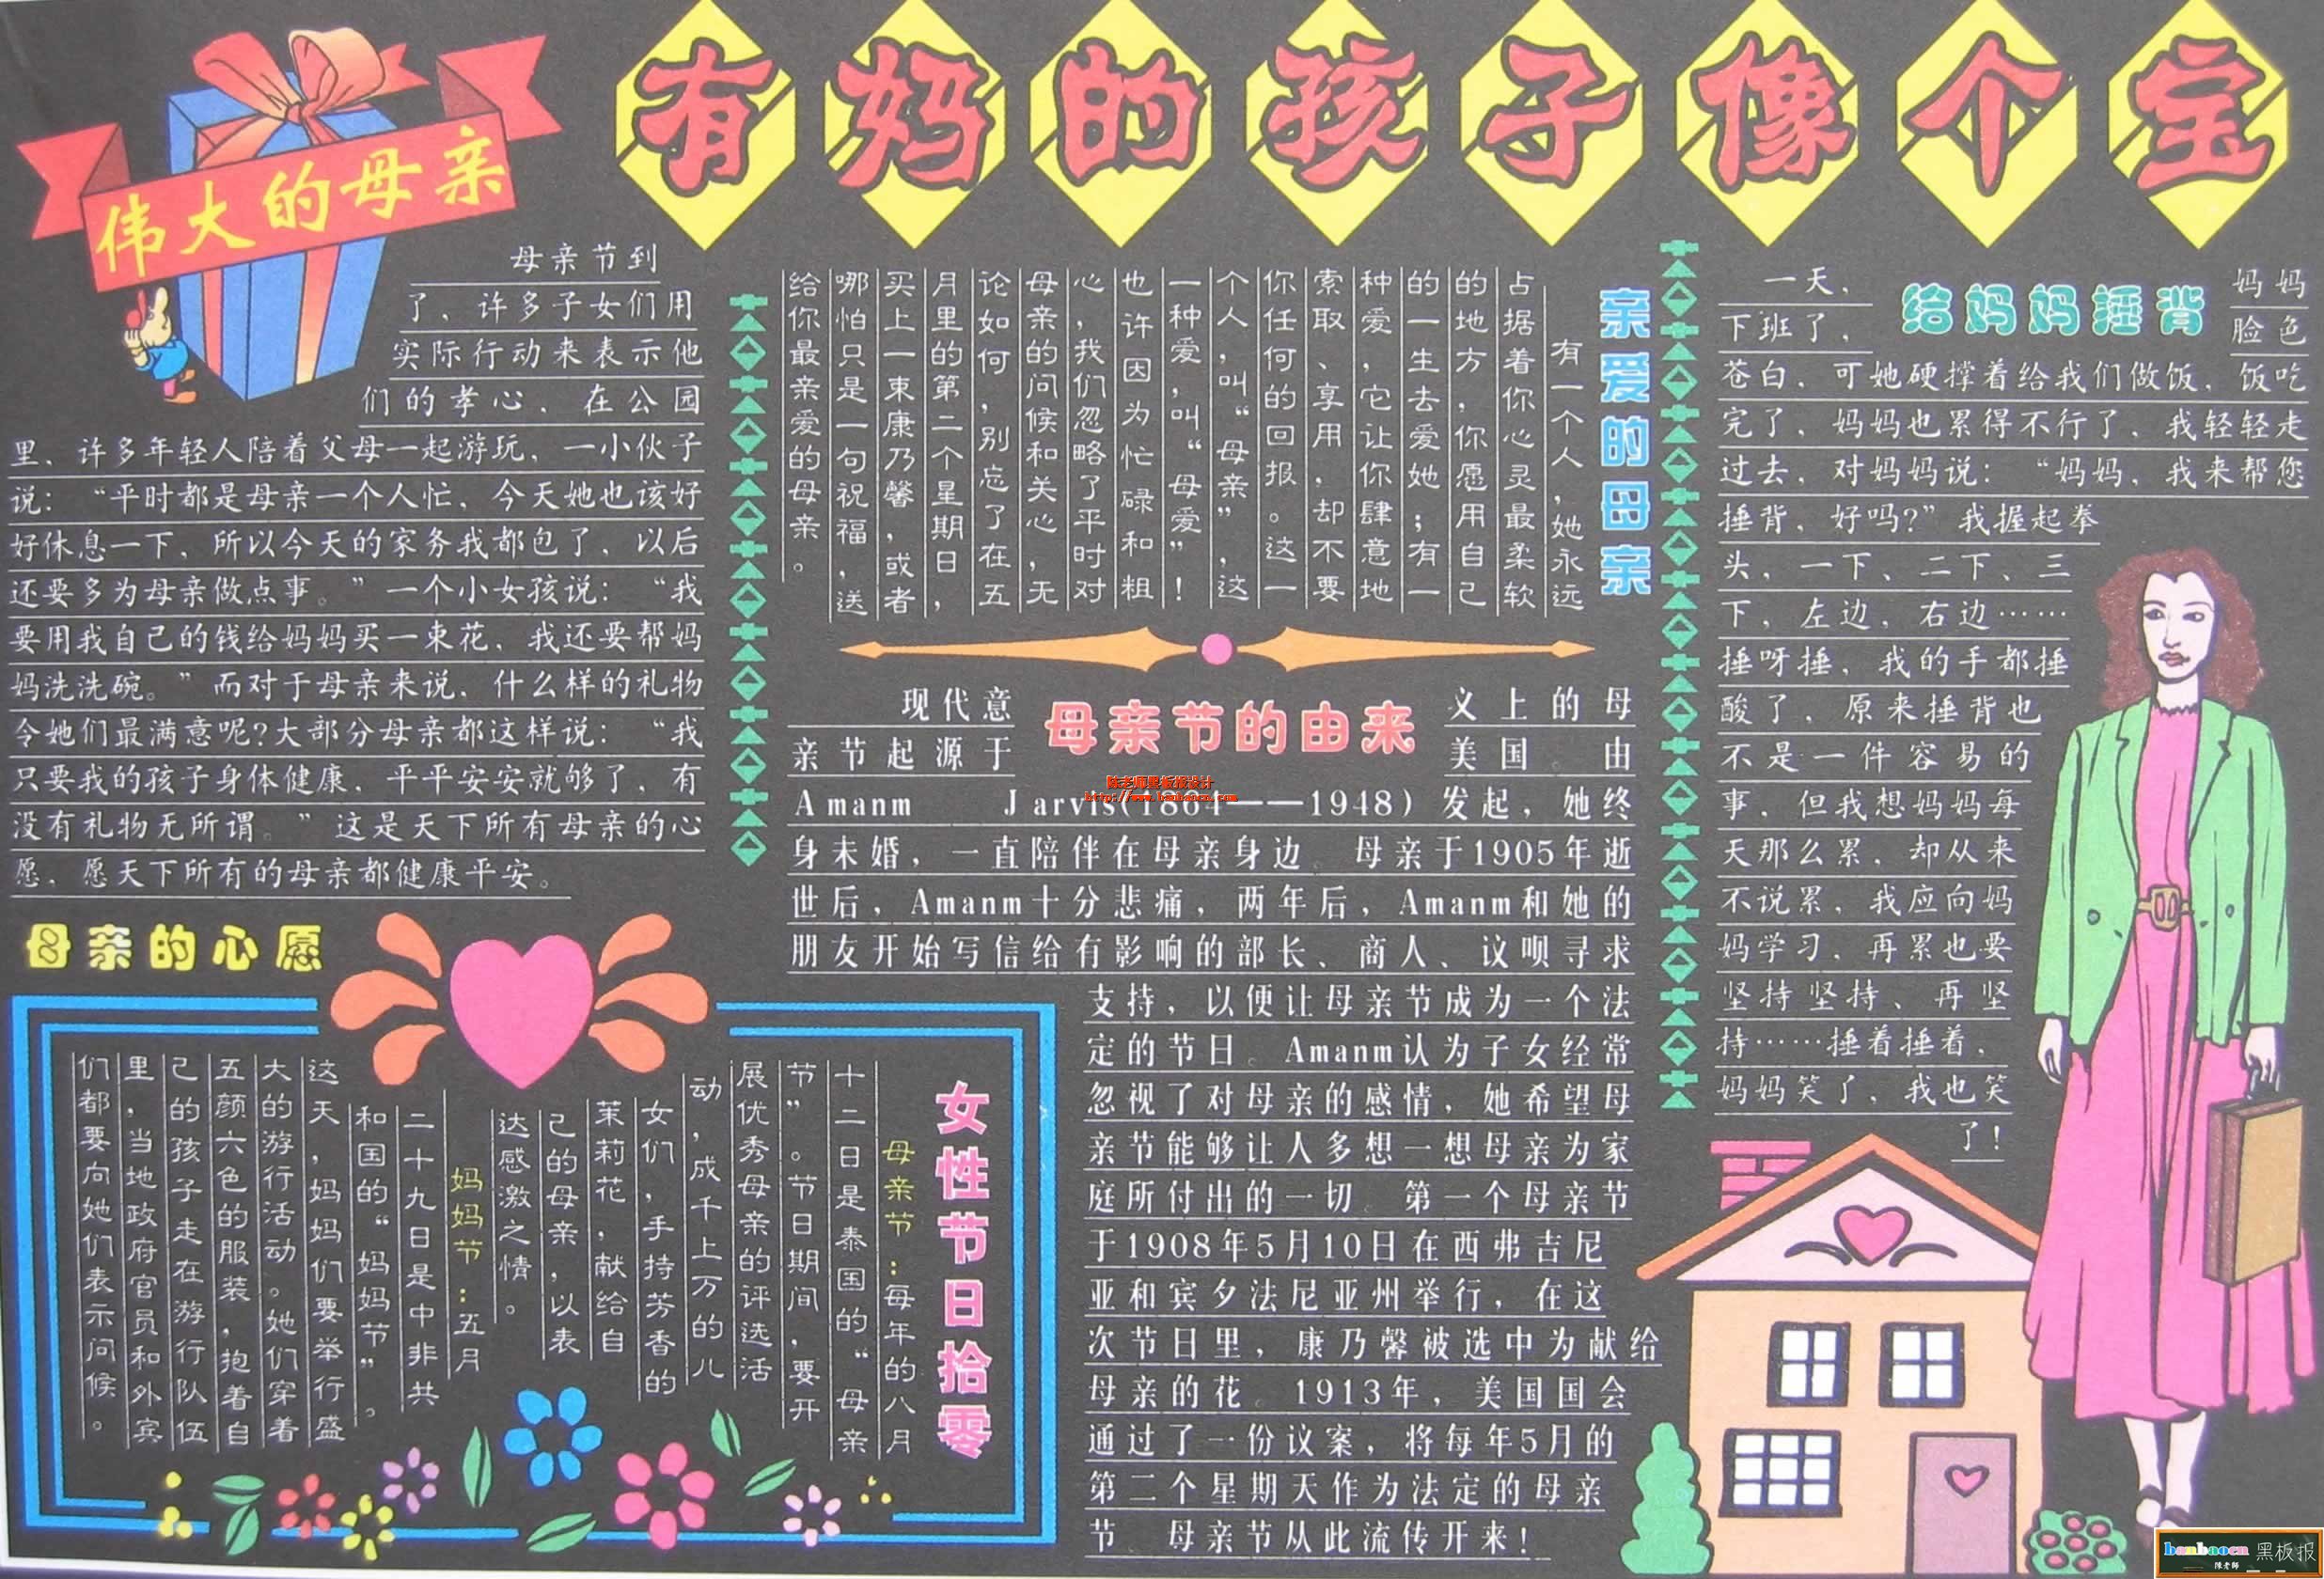 有妈的孩子像个宝
伟大的母亲
母亲节到
了、许多子女们用
实际行动来表示他
们的孝心、在公园
里、许多年轻人陪着父母一起游玩、一小伙子
说：“平时都是母亲一个人忙、今天她也该好
好休息一下、所以今天的家务我都包了、以后
还要多为母亲做点事。”一个小女孩说：“我
要用我自己的钱给妈妈买一束花，我还要帮妈
妈洗洗碗。”而对于母亲来说、什么样的礼物
令她们最满意呢？大部分母亲都这样说：“我
只要我的孩子身体健康，平平安安就够了，有
没有礼物无所谓。”这是天下所有母亲的心
愿、愿天下所有的母亲都健康平安。
母亲的心愿
亲爱的母亲
有一个人，她永远
占据着你心灵最柔软
的地方，你愿用自己
的一生去爱她；有一
种爱，它让你肆意地
索取、享用，却不要
你任何的回报。这一
个人，叫“母亲”，这
一种爱，叫“母爱”！
也许因为忙碌和粗
心，我们忽略了平时对
母亲的问候和关心，无
论如何，别忘了在五
月里的第二个星期日，
买上一束康乃馨，或者
哪怕只是一句祝福，送
给你最亲爱的母亲。
母亲节的由来
现代意义上的母
亲节起源于美国。由
Amanm Jarvis(1864——1948)发起，她终
身未婚，一直陪伴在母亲身边。母亲于1905年逝
世后，Amanm十分悲痛，两年后，Amanm和她的
朋友开始写信给有影响的部长、商人、议呗寻求
支持，以便让母亲节成为一个法
定的节日。Amanm认为子女经常
忽视了对母亲的感情，她希望母
亲节能够让人多想一想母亲为家
庭所付出的一切。第一个母亲节
于1908年5月10日在西弗吉尼
亚和宾夕法尼亚州举行，在这
次节日里，康乃馨被选中为献给
母亲的花。1913年，美国国会
通过了一份议案，将每年5月的
第二个星期天作为法定的母亲
节。母亲节从此流传开来！
陈老师黑板报设计
http://www.banbaocn.com
给妈妈捶背
一天，妈妈
下班了，脸色
苍白，可她硬撑着给我们做饭，饭吃
完了，妈妈也累得不行了，我轻轻走
过去，对妈妈说：“妈妈，我来帮您
捶背，好吗？”我握起拳
头，一下、二下、三
下，左边，右边……
捶呀捶，我的手都捶
酸了，原来捶背也
不是一件容易的
事，但我想妈妈每
天那么累，却从来
不说累，我应向妈
妈学习，再累也要
坚持坚持、再坚
持……捶着捶着，
妈妈笑了，我也笑
了！
女性节日拾零
母亲节：每年的八月
十二日是泰国的“母亲
节”。节日期间，要开
展优秀母亲的评选活
动，成千上万的儿
女们，手持芳香的
茉莉花，献给自
己的母亲，以表
达感激之情。
妈妈节：五月
二十九日是中非共
和国的“妈妈节”。
这天，妈妈们要举行盛
大的游行活动。她们穿着
五颜六色的服装，抱着自
己的孩子走在游行队伍
里，当地政府官员和外宾
们都要向她们表示问候。
banbaocn 黑板报
陈老师